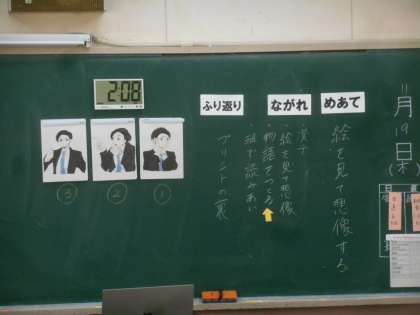 11月19日(木)
めあて
絵を見て想像する
ながれ
漢字
絵を見て想像
物語をつくる
班で読みあい
ふり返り
プリントの裏
2:08
①
②
③